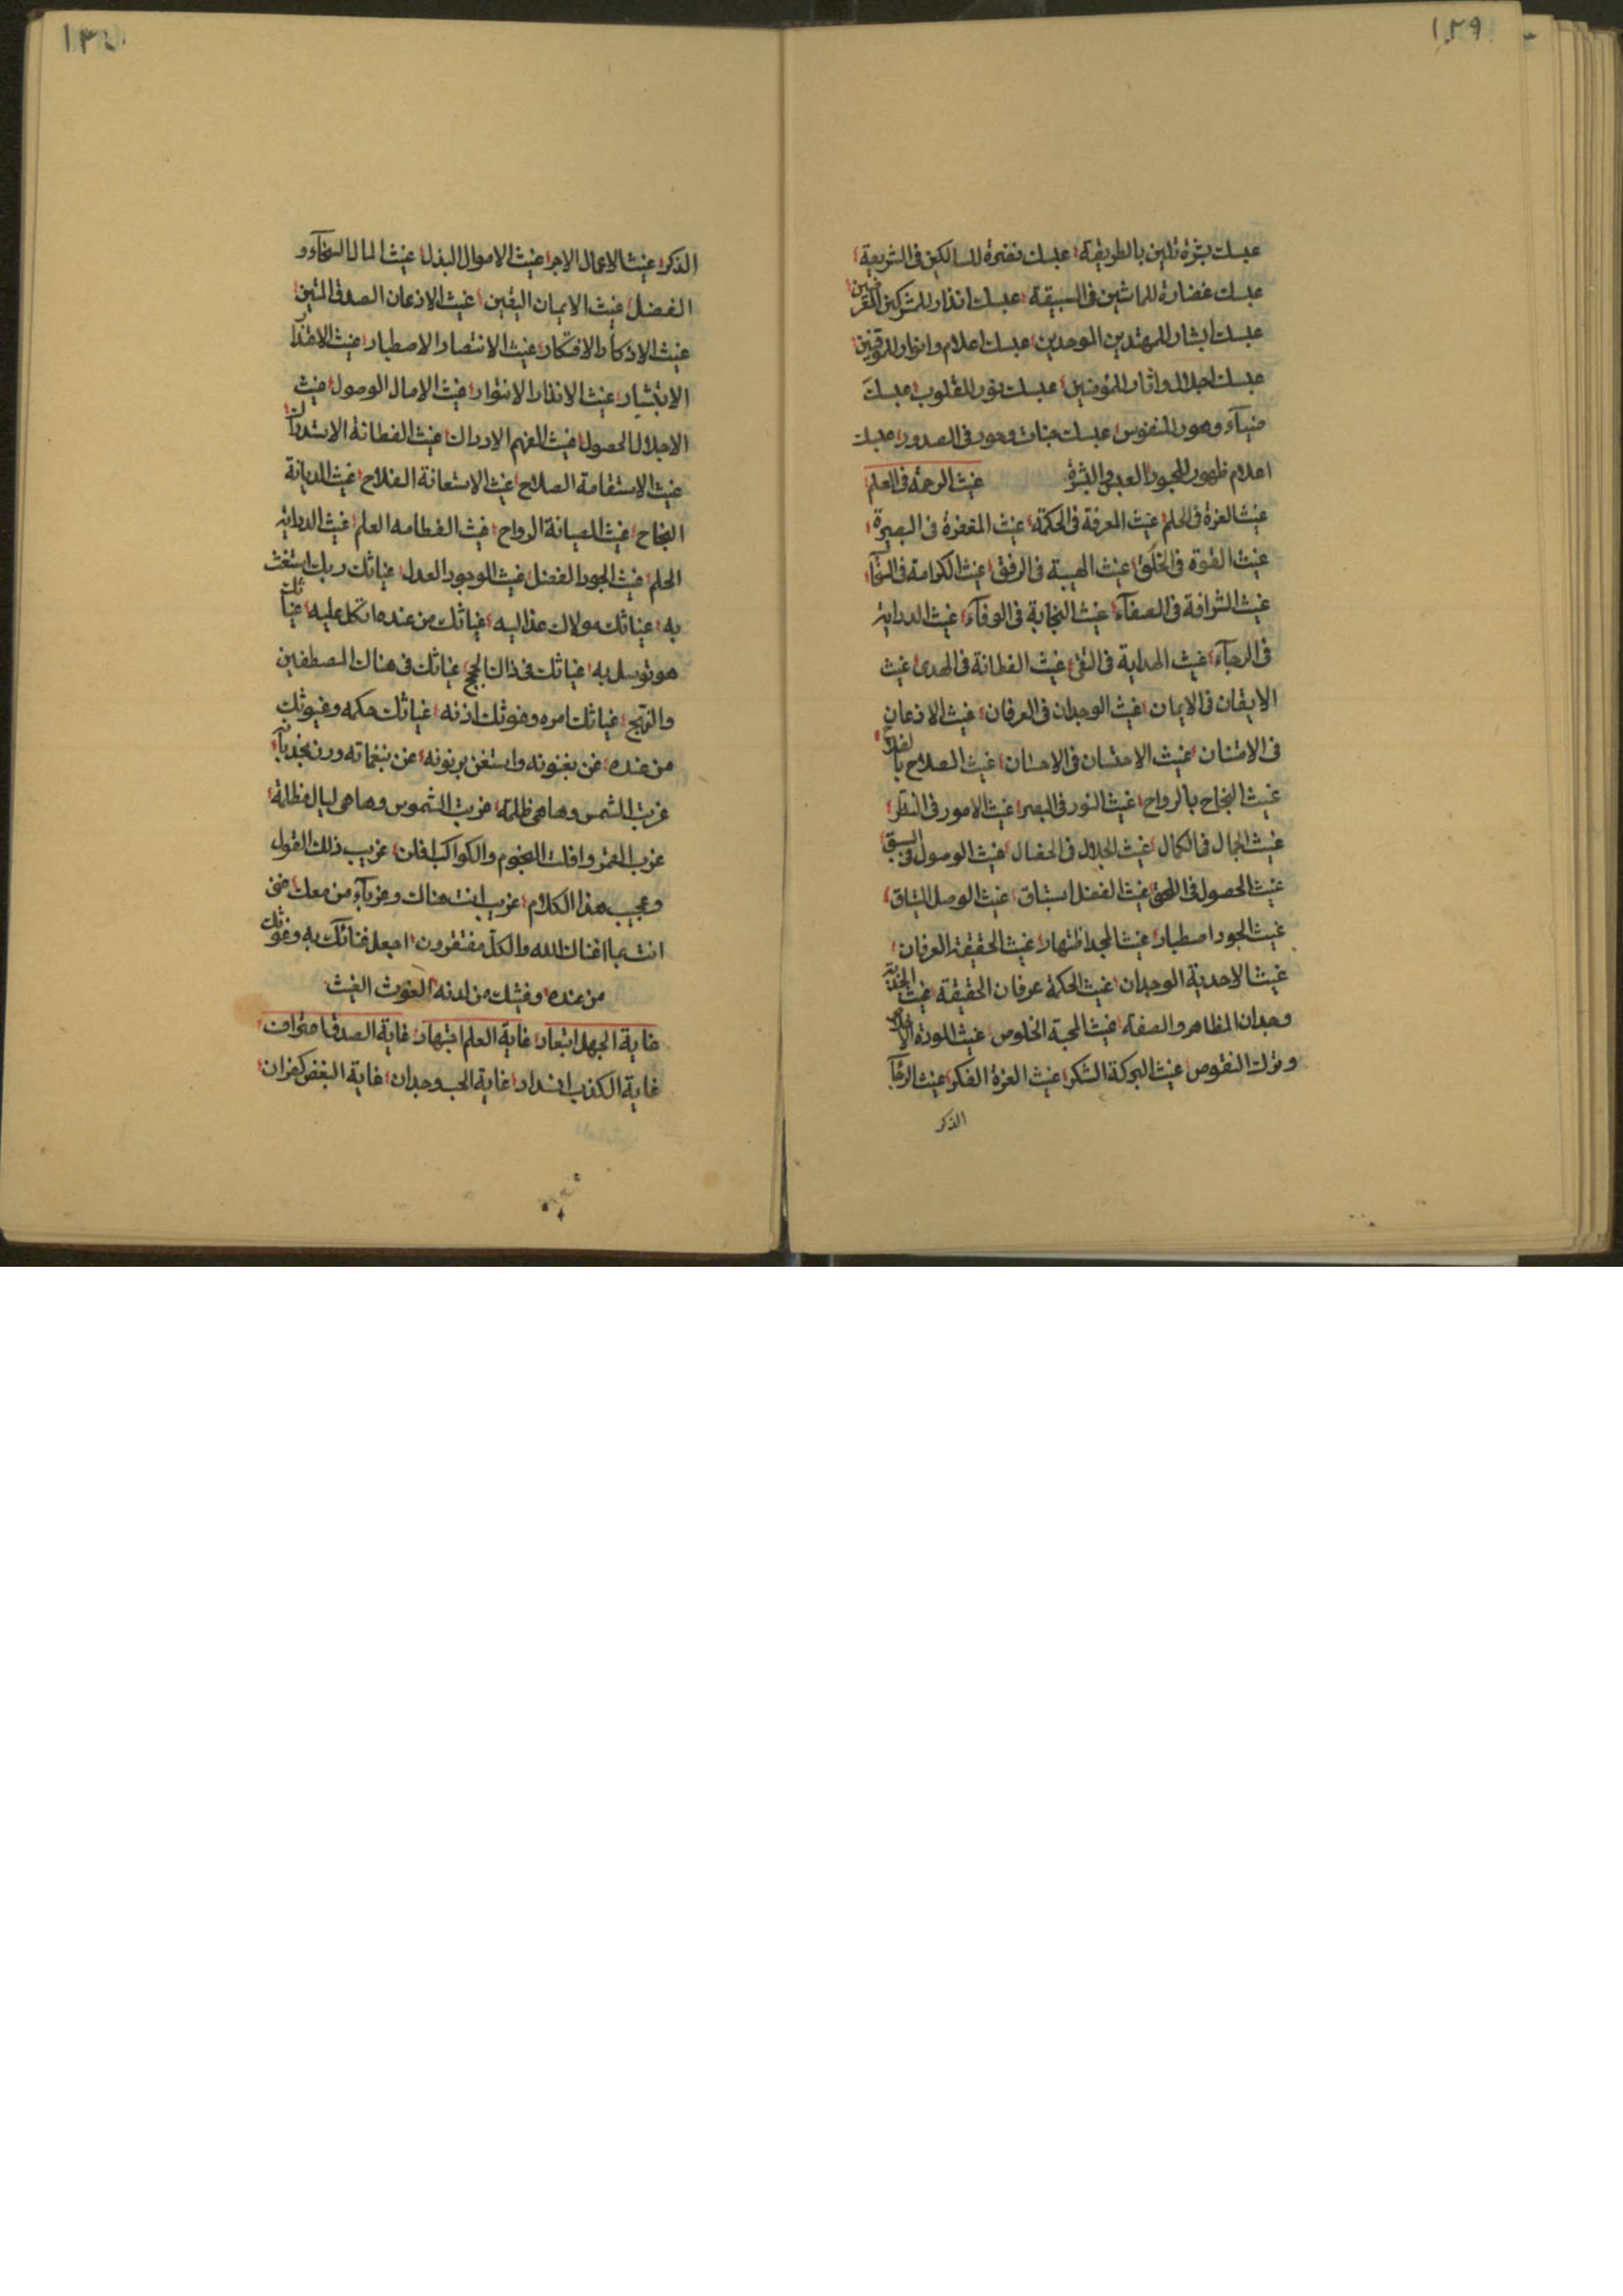 ١٢٩
عبسك بشرة تلين بالطريقة عبسك نضرة للسالكين فى الشريعة
عبسك غضارة للماشين فى السبيقة عبسك انذار للمشركين
عبسك ابشار للمهتدين الموحدين عبسك اعلام وانوار للموقنين
عبسك اجلال واثار للمؤمنين عبسك نور للقلوب عبسك
ضيآء وهور للنفوس عبسك جنات وحور فى الصدور عبسك
اعلام ظهور المجود العبد فى البشرة غيث الرحمة فى العلم
غيث العزة فى الحلم غيث المعرفة فى الحكمة غيث المغفرة فى البصيرة
غيث القوة فى الخلق غيث الهيبة فى الرفق غيث الكرامة فى
غيث الشرافة فى الصفآء غيث النجابة فى الوفآء غيث الدراية
فى الرجآء غيث الهداية فى التقى غيث الفطانة فى الهدى غيث
الايقان فى الايمان غيث الوجدان فى العرفان غيث الاذعان
فى الامتنان غيث الاحتسان فى الاحسان غيث الصلاح بالفلاح
غيث النجاح بالرواح غيث النور فى البصر غيث الامور فى النظر
غيث الجمال فى الكمال غيث الجلال فى الخصال غيث الوصول فى السبق
غيث الحصول فى اللحق غيث الفضل استباق غيث الوصل
غيث الجود اصطبار غيث المجد اظتهار غيث الحقيقة العرفان
غيث الاحدية الوجدان غيث الحكمة عرفان الحقيقة غيث الجذبة
وجدان المظاهر والصفة غيث المحبة الخلوص غيث المودة
وترك النقوص غيث البركة الشكر غيث العزة الفكر غيث
الذكر
١٣٠
الذكر غيث الاعمال الاجر غيث الاموال البذل غيث المال السخآء و
الفضل غيث الايمان اليقين غيث الاذعان الصدق المتين
غيث الاذكار الافتكار غيث الانتصار الاصطبار غيث
الابتشار غيث الانذار الانتوار غيث الامال الوصول غيث
الاجلال الحصول غيث الفهم الادراك غيث الفطانة الاستدراك
غيث الاستقامة الصلاح غيث الاستعانة الفلاح غيث الديانة
النجاح غيث الصيانة الرواح غيث الفطامه العلم غيث الدراية
الحلم غيث الجود الفضل غيث الوجود العدل غياثك ربك استغث
به غياثك مولاك عذ اليه غياثك من عنده اتكل عليه غياثك
هو توسل به غياثك فى ذاك الحج غياثك فى هناك المصطفين
والنهج غياثك امره وغوثك اذنه غياثك حكمه وغيوثك
من عنده غن بغنونه واستغن برنونه غن بنغماته ورن
غربت الشمس وها هى ظلمة غربت الشموس وها هى ليال مظلمة
غرب القمر وافلت النجوم والكواكب افلن غريب ذلك القول
وعجيب هذا الكلام غريب انت هناك وغربآء من معك
انت بما اغناك الله والكل مفتقرون اجعل غنائك به وغوثك
من عنده وغيثك من لدنه الغوث الغيث
غاية الجهل ابتعاد غاية العلم اجتهاد غاية الصدق اعتراف
غاية الكذب غاية الحب وجدان غاية البغض كفران